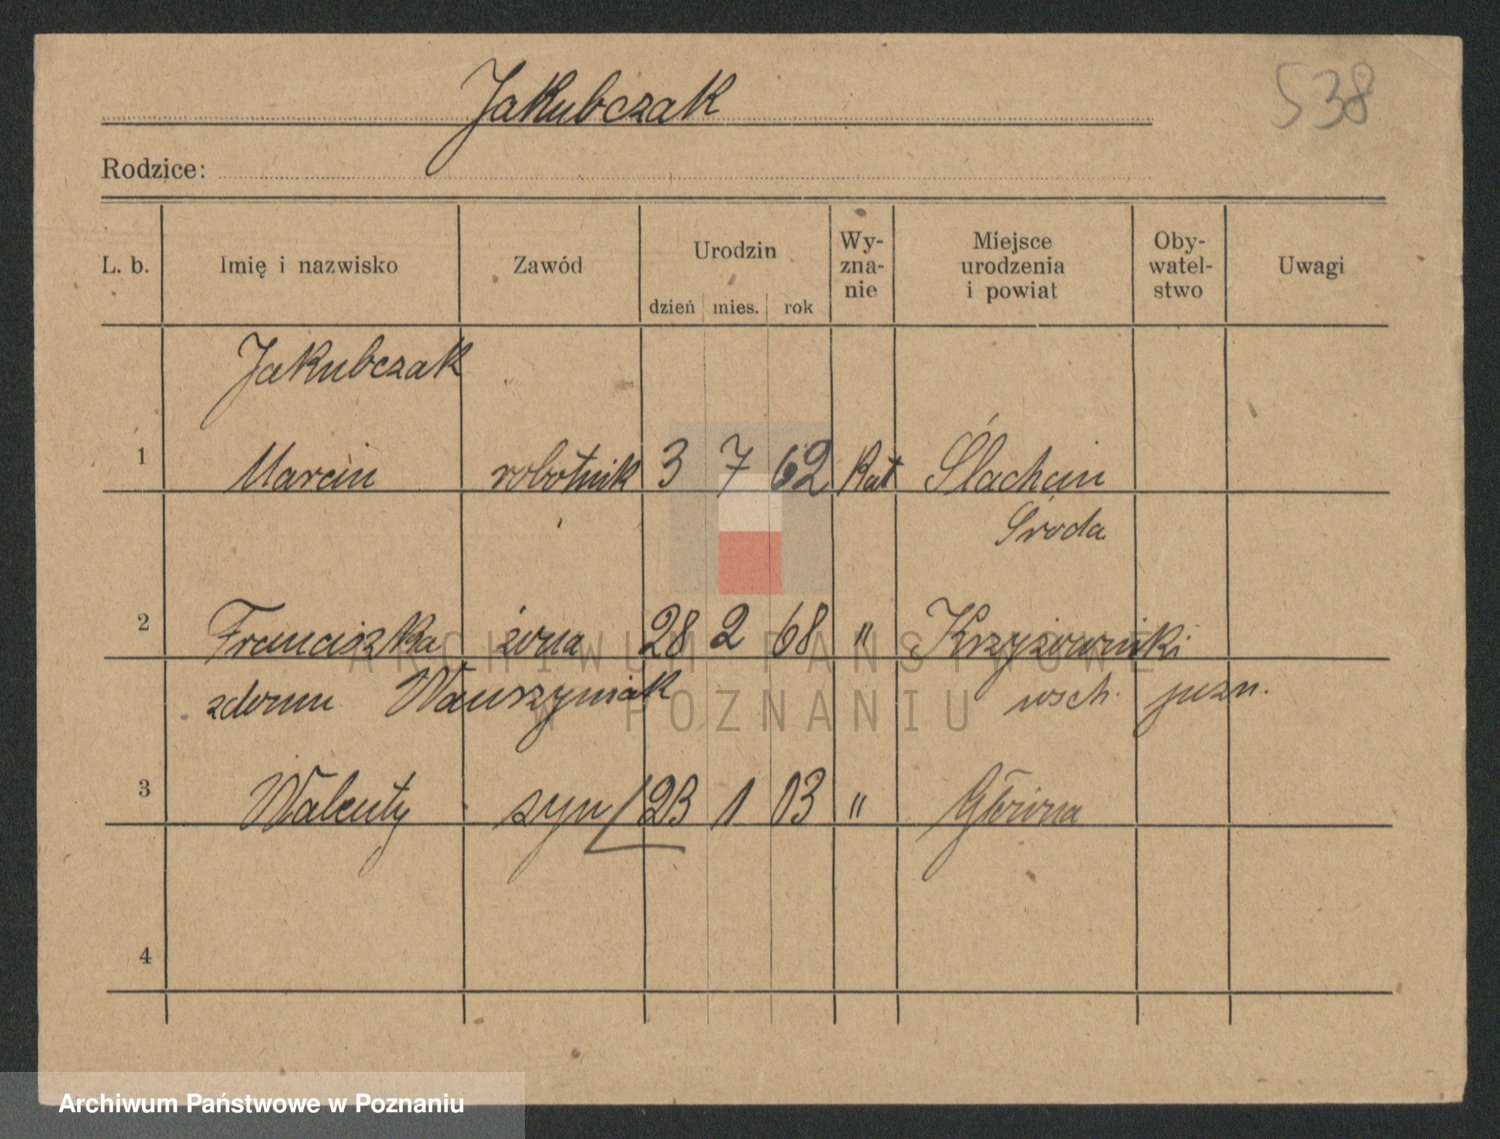 Jakubczak
538
Rodzice:
L. b. Imię i nazwisko Zawód Urodzin dzień mies. rok Wy-zna-nie Miejsce urodzenia i powiat Oby-watel-stwo Uwagi
Jakubczak
1 Marcin robotnik 3 7 62 Kat Ślachcin
Środa
2 Franciszka żona 28 2 68 " Krzyżowniki
zdomu Wawrzyniak wsch. pozn.
3 Walenty syn 23 1 03 " Główna
4
ARCHIWUM PAŃSTWOWE
W POZNANIU
Archiwum Państwowe w Poznaniu